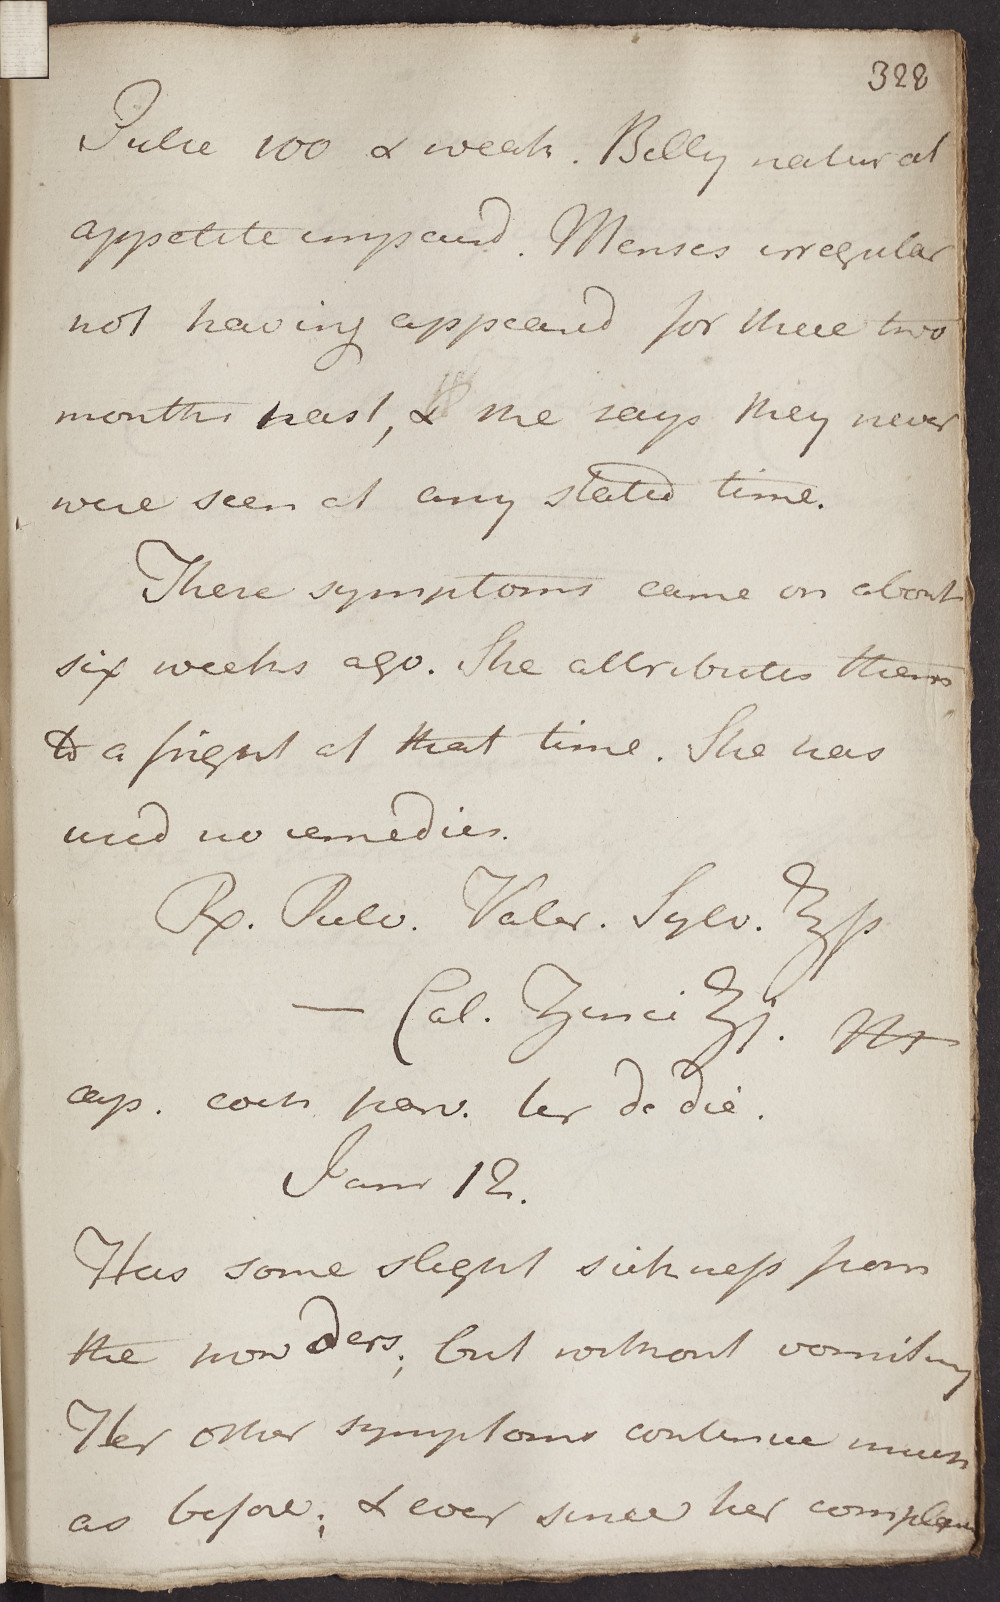 328
Pulse 100 & weak. Belly natural
appetite impaired. Menses irregular
not having appeared for these two
months past, & she says they never
were seen at any stated time.
These symptoms came on about
six weeks ago. She attributes them
to a fright at that time. She has
used no remedies.
Rx. Pulv. Valer. Sylv. ℥ſs
— Cal. Zinci ʒj. M
cap. coch parv. ter de die.
Janr 12.
Has some slight sickneſs from
the powders; but without vomiting
Her other symptoms continue much
as before; & ever since her complain